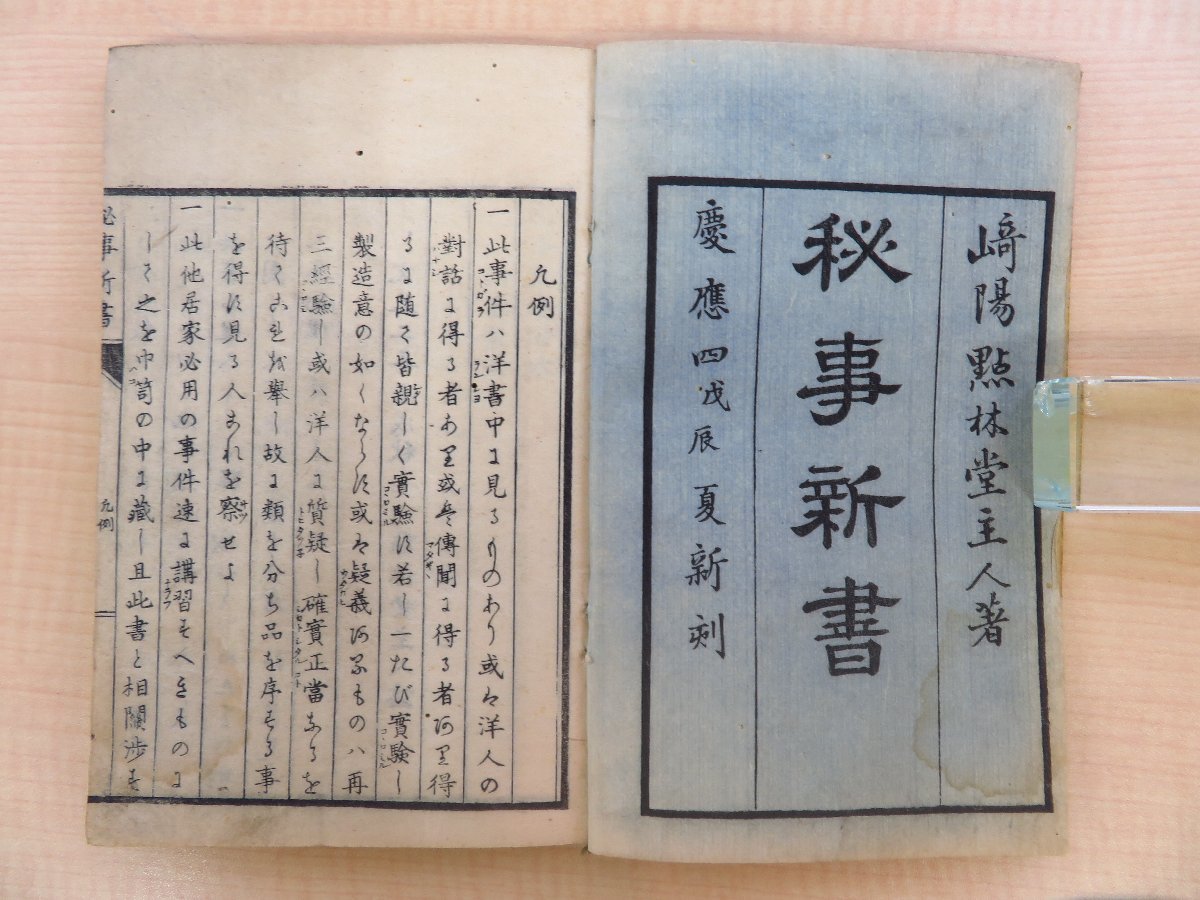 﨑陽點林堂主人著
秘事新書
慶應四戊辰夏新刻
凡例
一此事件ハ洋書中に見るものあり或は洋人の
對話に得る者あり或は傳聞に得る者あり得
るに随て皆親しく實驗す若し一たび實驗し
製造意の如くならず或は疑義あるものハ再
三經驗し或ハ洋人に質疑し確實正當なるを
待てこれを擧し故に類を分ち品を序する事
を得ず見る人これを察せよ
一此他居家必用の事件速に講習すへきものに
して之を巾笥の中に藏し且此書と相關渉す
秘事新書
凡例